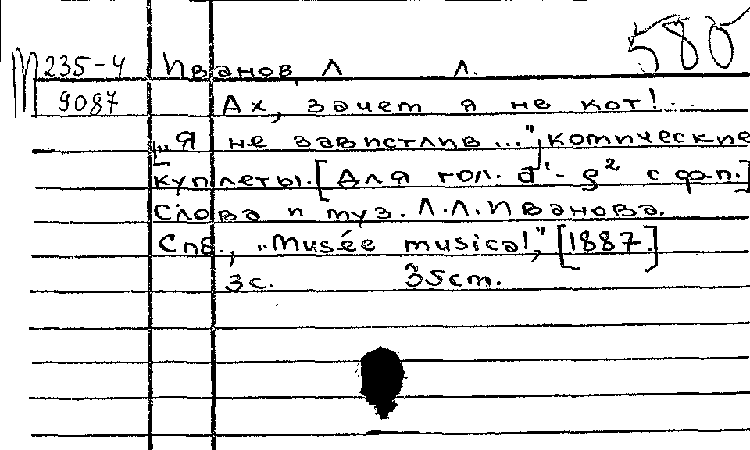 580
М 235-4 Иванов, Л. Л.
9087 Ах, зачем я не кот!..
[„Я не завистлив..."], комические
куплеты. [Для гол. d¹-g² с ф-п.]
Слова и муз. Л.Л.Иванова.
Спб., „Musée musical", [1887.]
3с. 35cm.